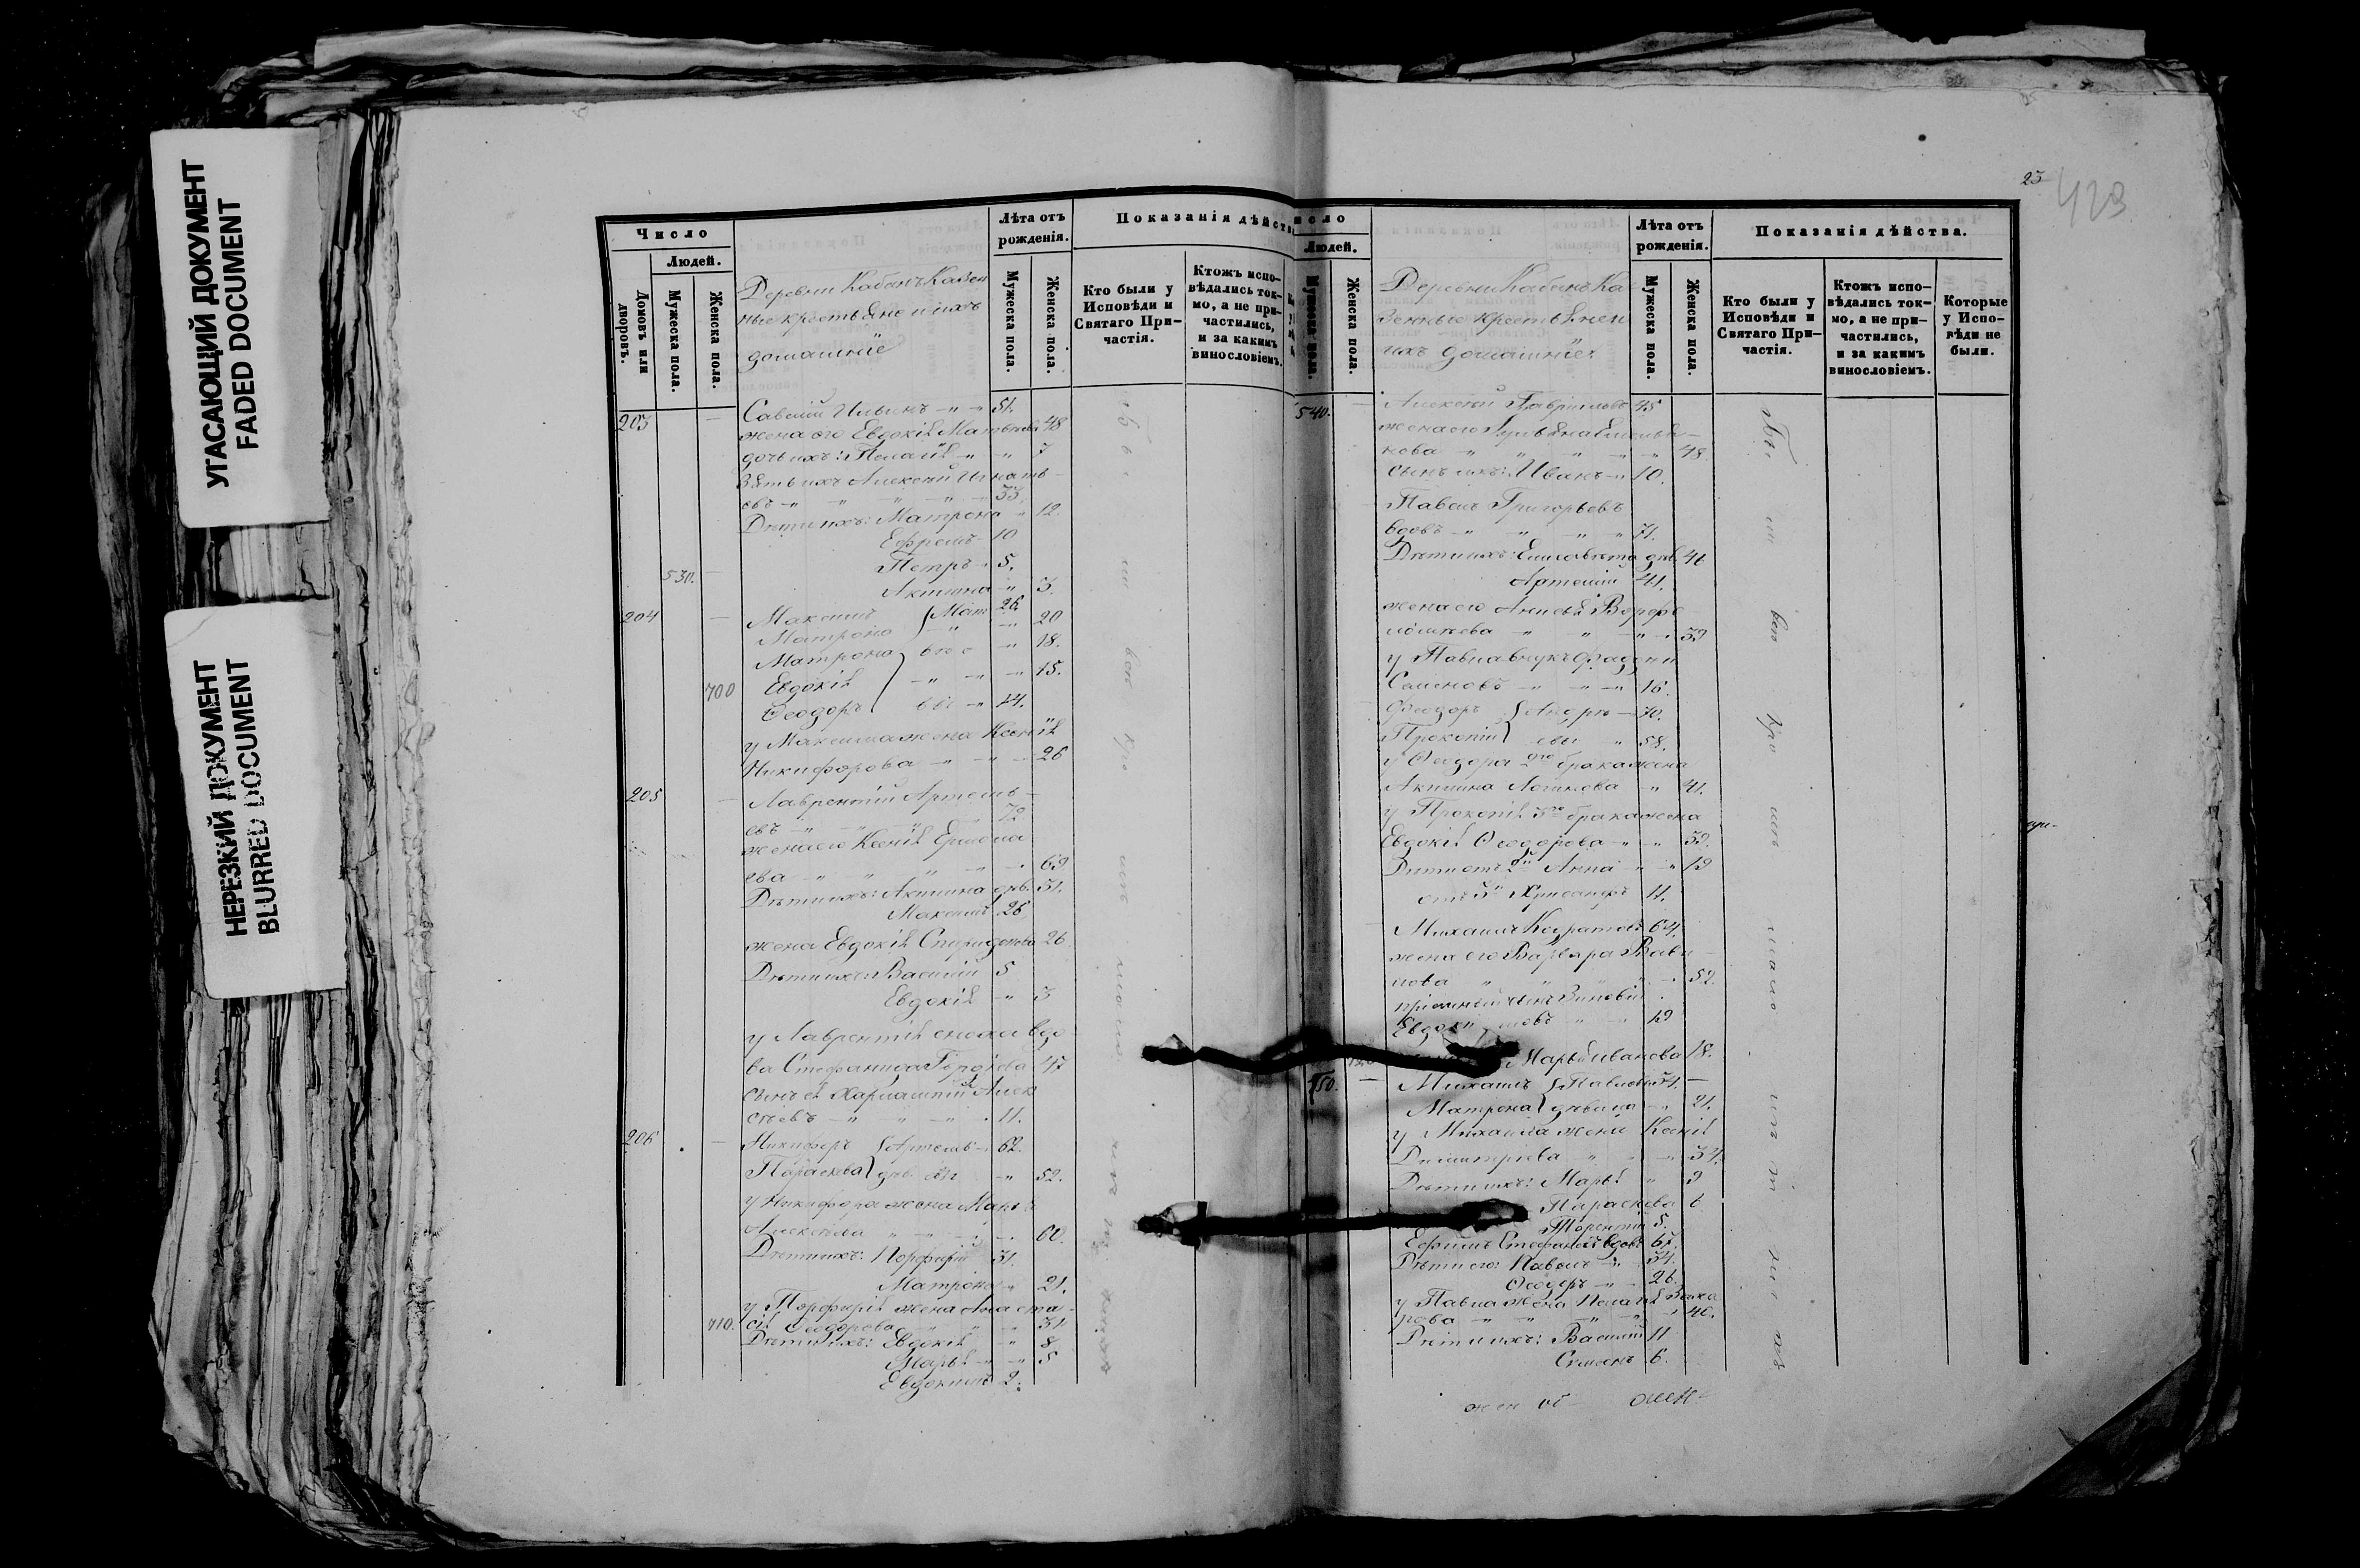 УГАСАЮЩИЙ ДОКУМЕНТ
FADED DOCUMENT
НЕРЕЗКИЙ ДОКУМЕНТ
BLURRED DOCUMENT
Число
Людей.
Домовъ или дворовъ.
Мужеска пола.
Женска пола.
Деревни Кабанъ Казен
ные крестьяне и ихъ
домашніе
Лѣта отъ рожденія.
Мужеска пола.
Женска пола.
Показанія дѣйств
Кто были у Исповѣди и Святаго При-частія.
Ктожъ испо-вѣдались ток-мо, а не при-частились, и за какимъ винословіемъ.
203 Савелій Ильинъ 51.
жена его Евдокія Матвѣева 48
дочь ихъ: Пелагія 7
Зять ихъ Алексій Игнать-
евъ 33
Дѣти ихъ: Матрона 12.
Ефремъ 10
530. Петръ 5.
Акилина 3.
204 Максимъ 26
Матрона 20
Матрона 18.
700 Евдокія 15.
Ѳеодоръ 14.
у Максима жена Ксенія
Никифорова 26
205 Лаврентій Артемь-
евъ 72
жена его Ксенія Ермола
ева 69
Дѣти ихъ: Акилина дѣв. 31.
Максимъ 26
жена Евдокія Спиридонова 26
Дѣти ихъ: Василій 5
Евдокія 3
у Лаврентія сноха вдо
ва Стефанида Гордѣева 47
сынъ ея Харлампій Алек
сѣевъ 11.
206 Никифоръ Артемь 62.
Параскева дѣв. 52.
у Никифора жена Марья
Алексѣева 60.
Дѣти ихъ: Порфирій 31.
Матрона 21.
у Порфирія жена Анаста-
710. сія Ѳеодорова 31
Дѣти ихъ: Евдокія 8
Марья 5
Евдокимъ 2.
23
423
исло
Людей.
Мужеска пола.
Женска пола.
Деревни Кабанъ Ка
зенные крестьяне и
ихъ домашніе
Лѣта отъ рожденія.
Мужеска пола.
Женска пола.
Показанія дѣйства.
Кто были у Исповѣди и Святаго При-частія.
Ктожъ испо-вѣдались ток-мо, а не при-частились, и за какимъ винословіемъ.
Которые у Испо-вѣди не были.
540. Алексій Гавріиловъ 45
жена его Ульяна Емелья-
нова 48.
сынъ ихъ: Иванъ 10.
Павелъ Григорьевъ
вдовъ 71.
Дѣти ихъ: Елисавета дѣв. 46
Артемій 41.
жена его Анисья Варѳо
ломѣева 39
у Павла внукъ Фаддей
Семеновъ 16.
Ѳеодоръ Андре 70.
Прокопій евы 58.
у Ѳеодора 2го брака жена
Акилина Логинова 41.
у Прокопія 3го брака жена
Евдокія Ѳеодорова 39.
Дѣти отъ 2й Анна 19
отъ 3й Хрисанфъ 11.
Михаилъ Кодратовъ 64.
жена его Варвара Вави
лова 52.
пріемный сынъ Зиновій
Евдокимовъ 19
Марья Иванова 18.
550. Михаилъ Павловы 34.
Матрона дѣвица 21.
у Михаила жена Ксенія
Димитріева 34.
Дѣти ихъ: Марья 9
Параскева 6
Терентій 5.
Ефимъ Стефановъ вдовъ 67.
Дѣти его: Павелъ 34.
Ѳеодоръ 26.
у Павла жена Пелагія Заха
рова 40.
Дѣти ихъ: Василій 11
Симеонъ 6.